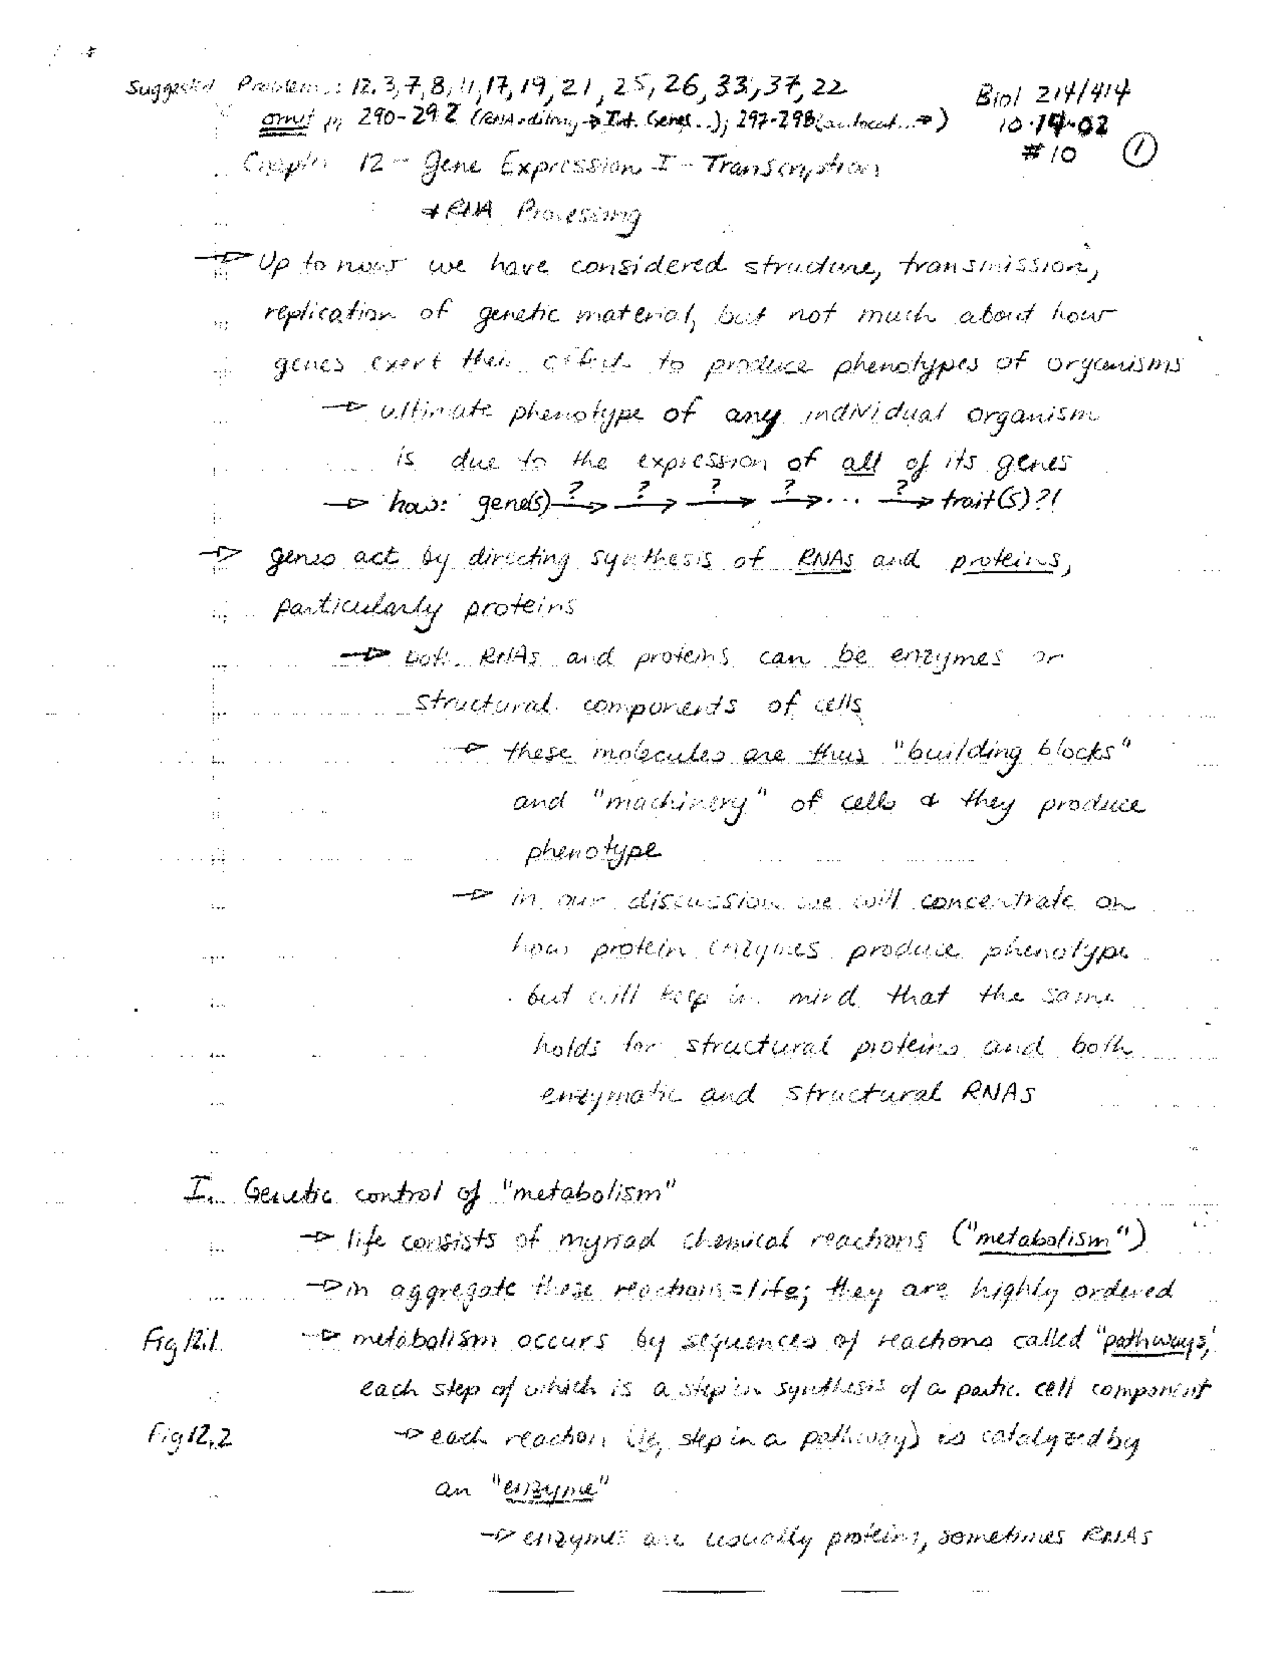 Suggested Problems: 12.3,7,8,11,17,19,21,25,26,33,37,22
Biol 214/414
omit p. 290-292 (RNA editing → Int. Genes..); 297-298 (autocat...→)
10-14-02
#10 ①
Chapter 12 - Gene Expression I - Transcription
& RNA Processing
→ Up to now we have considered structure, transmission,
replication of genetic material, but not much about how
genes exert their effect to produce phenotypes of organisms
→ ultimate phenotype of any individual organism
is due to the expression of all of its genes
→ how: gene(s) ?→ ?→ ?→ ?→ ... ?→ trait(s)?!
→ genes act by directing synthesis of RNAs and proteins,
particularly proteins
→ both RNAs and proteins can be enzymes or
structural components of cells
→ these molecules are thus "building blocks"
and "machinery" of cells & they produce
phenotype
→ in our discussion we will concentrate on
how protein enzymes produce phenotype
but will keep in mind that the same
holds for structural proteins and both
enzymatic and structural RNAs
I. Genetic control of "metabolism"
→ life consists of myriad chemical reactions ("metabolism")
→ in aggregate these reactions = life; they are highly ordered
Fig 12.1 → metabolism occurs by sequences of reactions called "pathways,"
each step of which is a step in synthesis of a partic. cell component
Fig 12.2 → each reaction (ie, step in a pathway) is catalyzed by
an "enzyme"
→ enzymes are usually proteins, sometimes RNAs